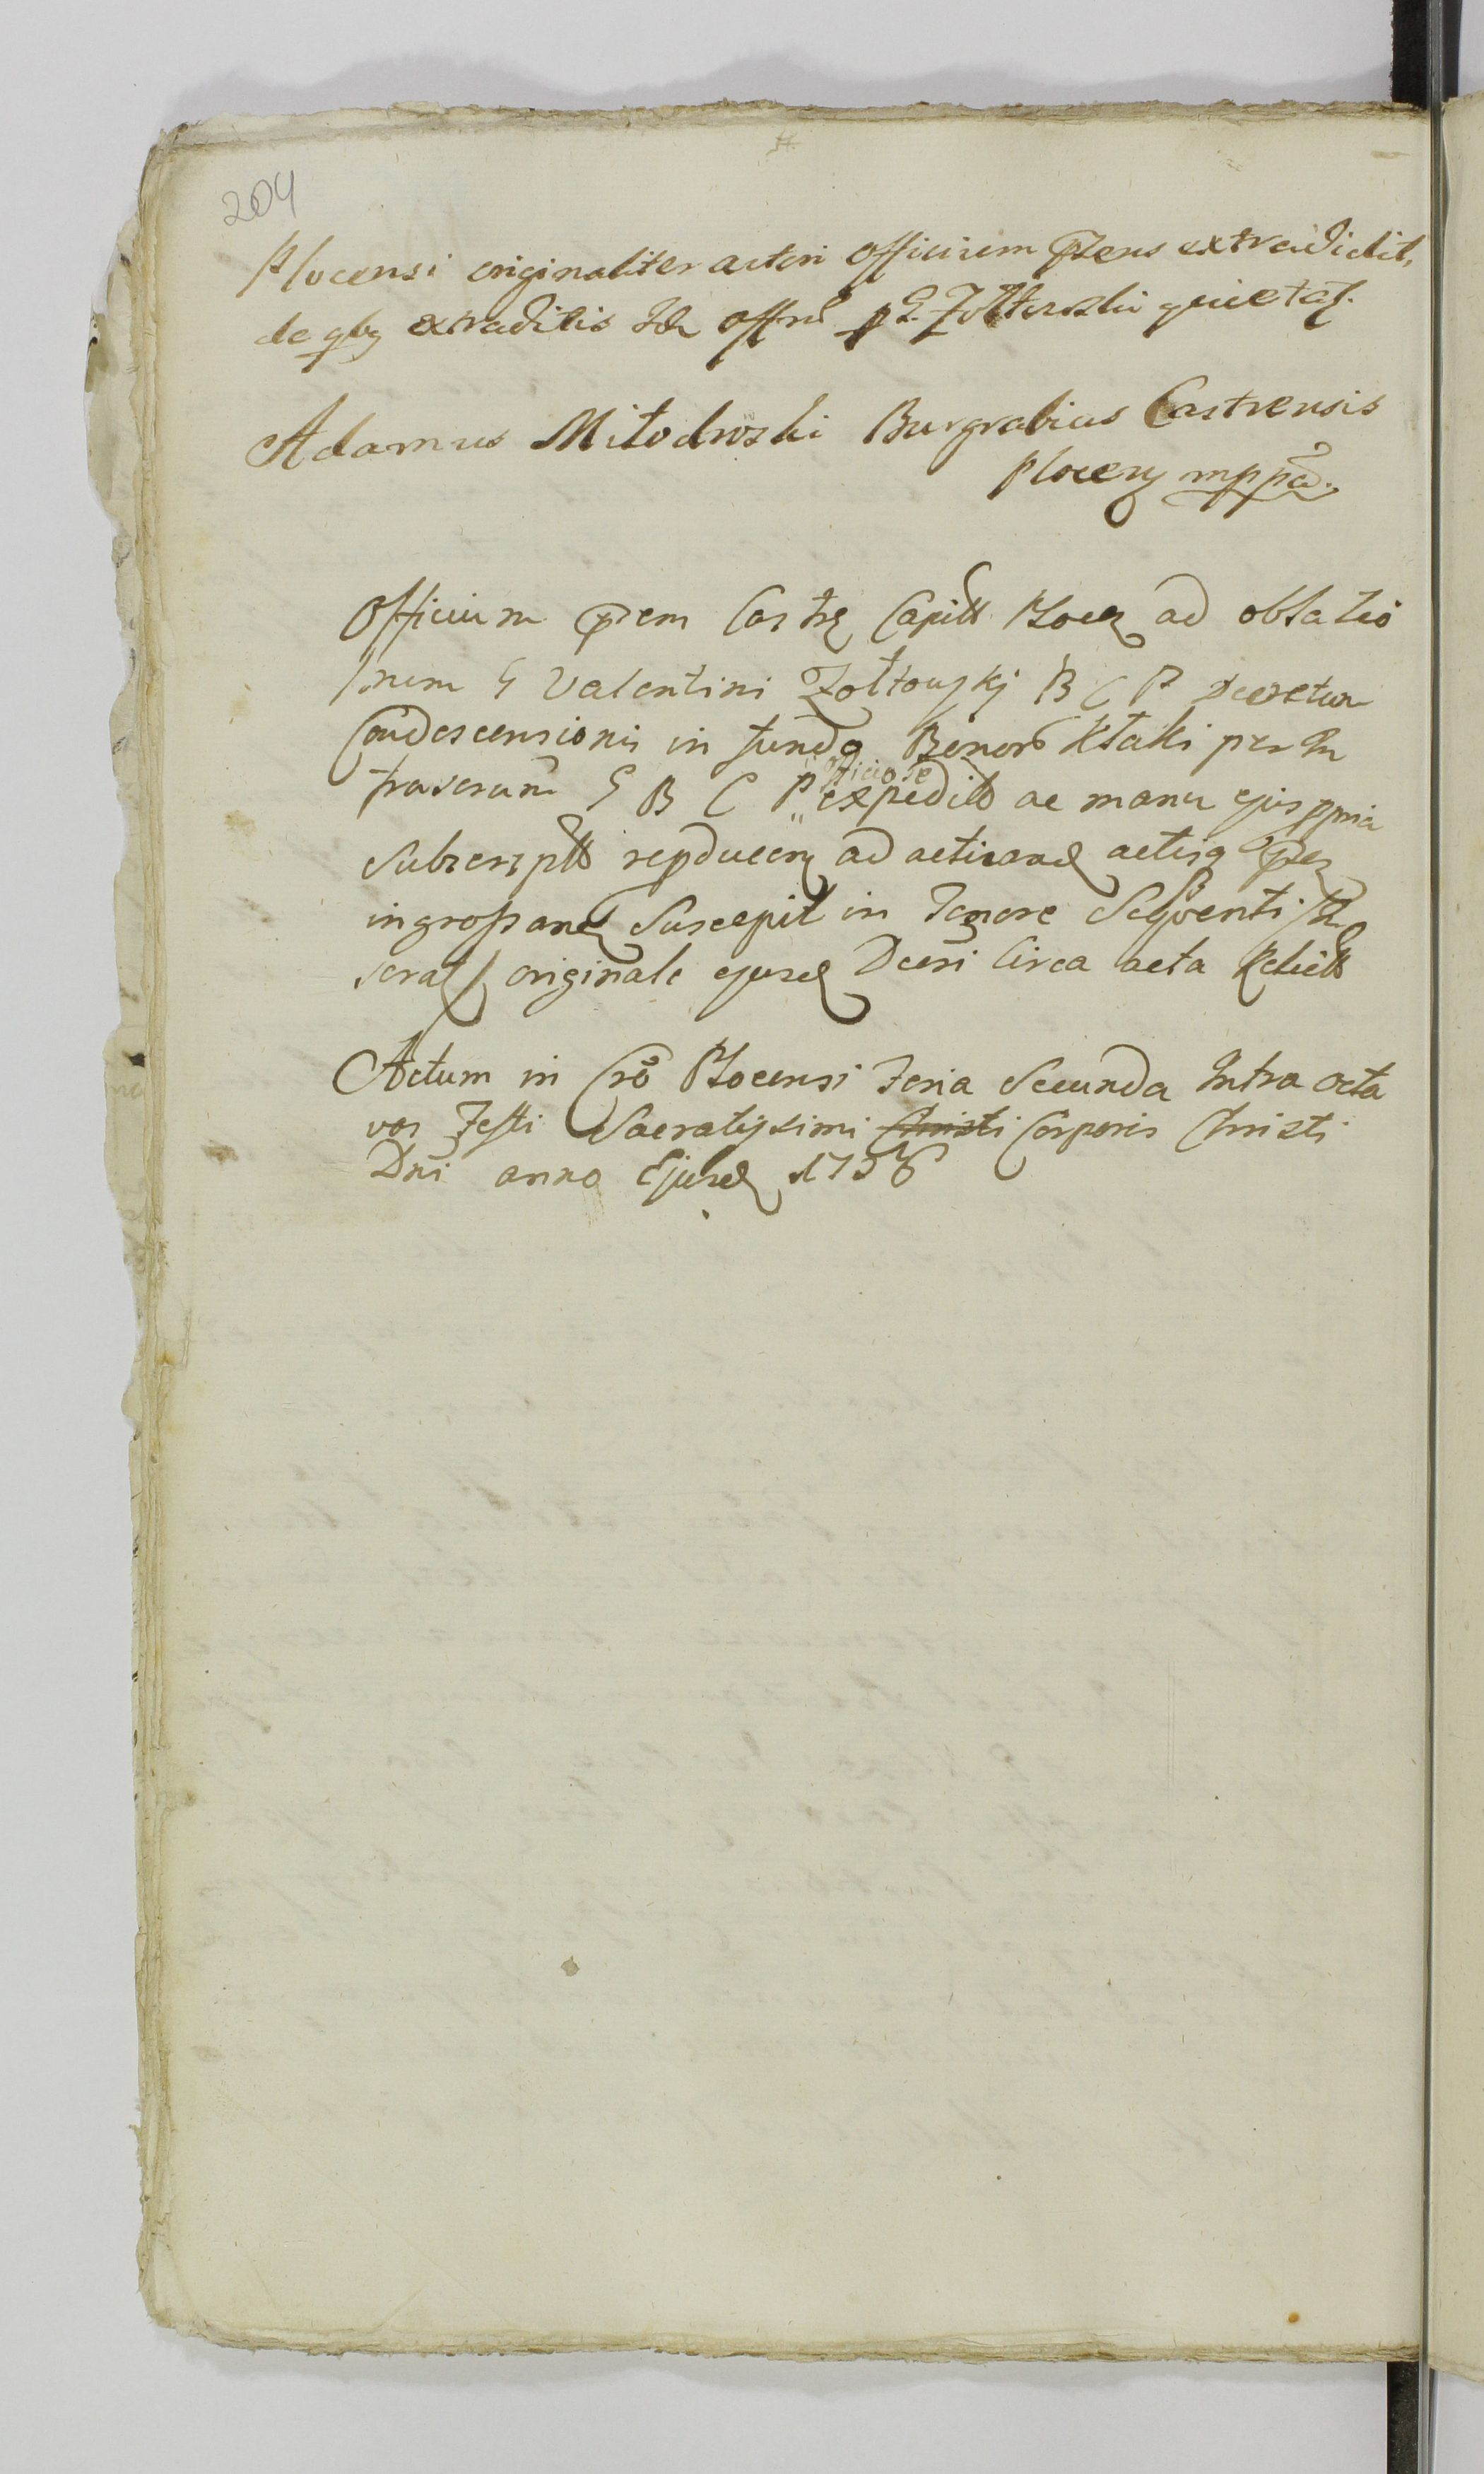 204
Plocensi originaliter actori Officium pñens extradidit,
de qbq extraditis Offm p G. Zołtowski quietat.
Adamus Miłodroski Burgrabius Castrensis
plocens mppa.
Officium pñem Castre Capitt Plocen ad oblatio
nem G Valentini Zołtowskj B C P Decretum
Condescensionis in fundo Bonorũ Kłaki per In
frascrum G B C P officiose expedit ac manu ejus ppria
Subscriptt repducen ad acticand actisq pñ
ingrossand Suscepit in Tenore Seqventi
originale ejusd Decri Circa acta Relictt
Actum in Cro Plocensi Feria Secunda Intra octa
vas Festi Sacratissimi Christi Corporis Christi
Dni anno Ejusd 1756